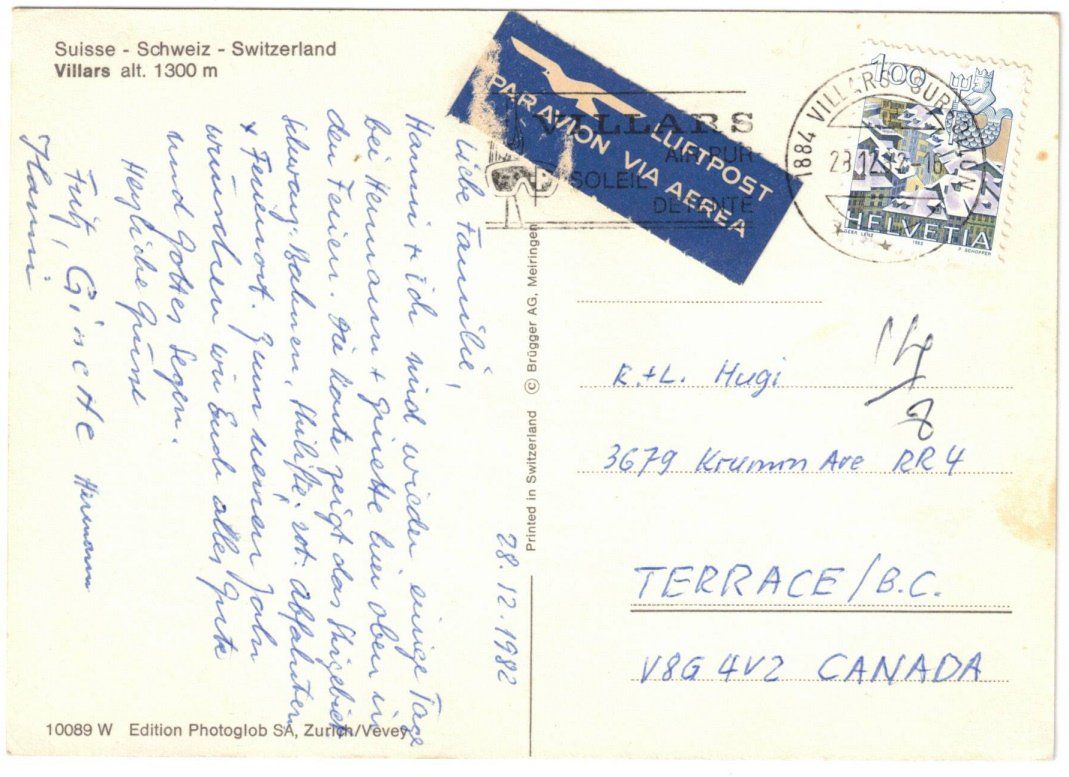 Suisse - Schweiz - Switzerland
Villars alt. 1300 m
28.12.1982
Liebe Familie,
Hanni + ich sind wieder einige Tage
bei Hermann + Ginette hier oben in
den Ferien. Die Karte zeigt das Skigebiet
schwarz: Bahnen, Skilifte; rot: Abfahrten
+ Ferienort. Zum neuen Jahr
wünschen wir Euch alles Gute
und Gottes Segen.
Herzliche Grüsse
Fritz,
Hermann
Hanni
10089 W Edition Photoglob SA, Zurich/Vevey
Printed in Switzerland © Brügger AG, Meiringen
PAR AVION VIA AEREA
LUFTPOST
VILLARS
AIR PUR
SOLEIL
DETENTE
1884 VILLARS-SUR-OLLON
28.12.82-16
1.00
HELVETIA
1982
14/8
R.+L. Hugi
3679 Krumm Ave RR4
TERRACE/B.C.
V8G 4V2 CANADA